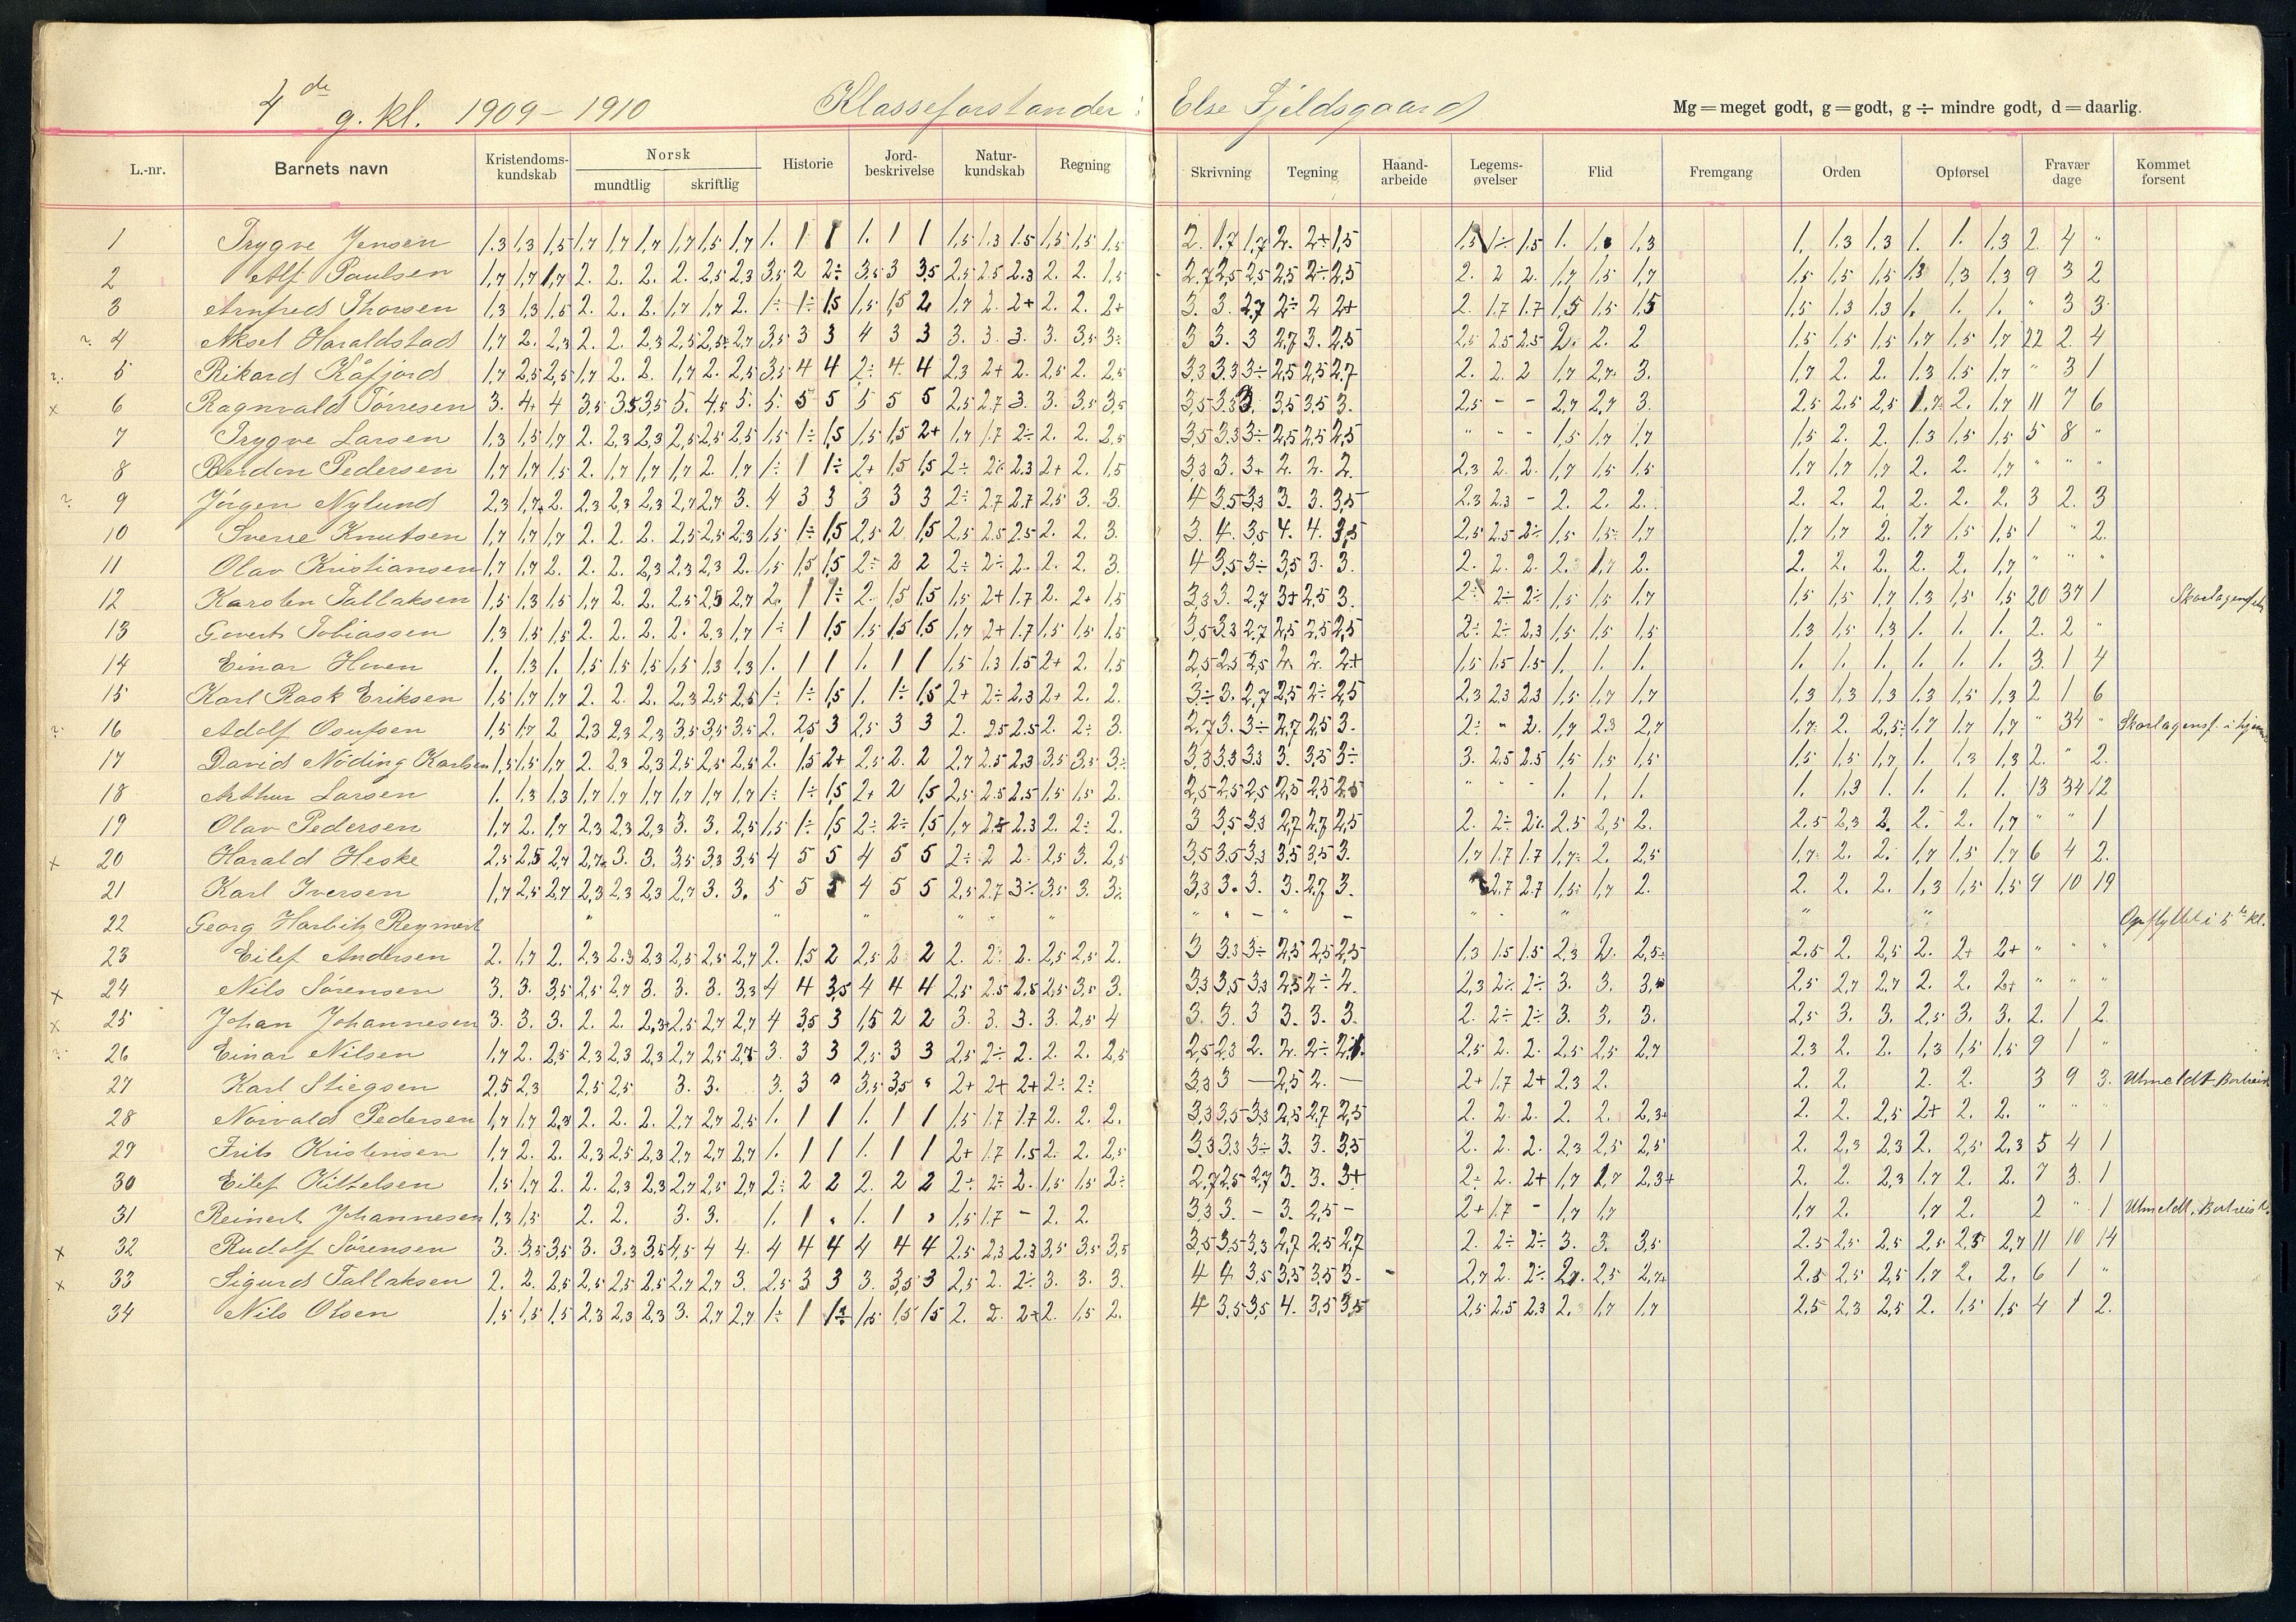 4de g. kl. 1909-1910 Klasseforstander: Else Fjeldsgaard Mg = meget godt, g = godt, g ÷ mindre godt, d = daarlig.
L.-nr. Barnets navn Kristendoms-kundskab Norsk mundtlig skriftlig Historie Jord-beskrivelse Natur-kundskab Regning Skrivning Tegning Haand-arbeide Legems-øvelser Flid Fremgang Orden Opførsel Fravær dage Kommet forsent
1 Trygve Jensen 1.3 1.3 1,5 1,7 1,7 1,7 1,7 1,5 1,7 1. 1 1 1. 1 1 1,5 1.3 1.5 1,5 1,5 1,5 2. 1,7 1,7 2. 2+ 1,5 1,5 1÷ 1.5 1. 1. 1,3 1. 1.3 1.3 1. 1. 1.3 2. 4 "
2 Alf Paulsen 1,7 1,7 1,7 2. 2. 2. 2. 2,5 2,3 3,5 2 2÷ 3,5 3 3,5 2,5 2,5 2.3 2. 2. 1,5 2.7 2,5 2,5 2,5 2÷ 2,5 2. 2 2. 1,7 1,5 1,7 1,5 1,5 1,5 1.3 1,3 1.3 9 3 2
3 Arnfred Thorsen 1,3 1,3 1,5 2. 2. 2. 1,7 1,7 2. 1÷ 1÷ 1,5 1,5 1,5 2 1,7 2. 2+ 2. 2. 2+ 3. 3. 2,7 2÷ 2 2+ 2. 1.7 1.7 1,5 1,5 1,5 1,5 1.3 1.3 1. 1. 1. " 3 3.
?. 4 Aksel Haraldstad 1,7 2. 2,3 2. 2. 2,3 2,5 2,5÷ 2,7 3,5 3 3 4 3 3 3. 3. 3. 3. 3,5 3÷ 3 3. 3 2,7 3. 2,5 2,5 2.5 2.5 2. 2. 2 1,5 1,5 1,5 1,7 1,5 1,7 22 2 4
?. 5 Rikard Kåfjord 1,7 2,5 2,5 1,7 2. 2. 1,7 2. 2,5 3,5 4 4 2÷ 4. 4 2,3 2+ 2. 2,5 2. 2,5 3,3 3.3 3÷ 2,5 2,5 2.7 2. 2. 2 1,7 2,7÷ 3. 1,7 2. 2. 1.3 1,5 1,7 " 3 1
x 6 Ragnvald Tørresen 3. 4+ 4 3,5 3,5 3,5 5. 4,5 5. 5. 5 5 5 5 5 2,5 2.7 3. 3. 3,5 3,5 3,5 3.3 3. 3,5 3.5 3. 2,5 - - 2,7 2,7 3. 2.5 2.5 2,5 1,7÷ 2. 1,7 11 7 6
7 Trygve Larsen 1,3 1,5 1,7 2. 2,3 2,3 2,5 2,5 2,5 1,5 1÷ 1,5 1,5 1,5 2+ 1,7 1.7 2÷ 2. 2. 2,5 3,5 3.3 3÷ 2,5 2,5 2,5 " - - 1,5 1,7 1,7 1,5 2. 2. 1.3 1,5 1,5 5 8 "
8 Berdon Pedersen 1,7 1,7 1,5 2. 1,7 1,7 1,7 2. 1,7 1÷ 1 1÷ 2+ 1,5 1,5 2÷ 2÷ 2.3 2+ 2. 1,5 3,3 3. 3+ 2. 2. 2. 2,3 2. 2. 1,7 1,5 1,5 1,7 1,7 1,7 2. 2. 1,7 " " "
? 9 Jørgen Nylund 2,3 1,7+ 2. 2,3 2,3 2,3 2,7 2,7 3. 4 3 3 3 3 3 2÷ 2.7 2.7 2,5 3. 3. 4 3.5 3,3 3. 3. 3,5 2.3 2.3 - 2. 2. 2. 2. 2. 2. 2. 2. 2. 3 2. 3
10 Sverre Knutsen 1,7 1,7 1,7 2. 2. 2. 2,5 2,5 2,3 1,5 1÷ 1,5 2,5 2 1,5 2,5 2.5 2.5 2. 2. 3. 3. 4. 3,5 4. 4. 3,5 2,5 2.5 2÷ 1,5 1,5÷ 1,7 1,7 1,7 2. 1,7 1,5 1,5 1 " 2.
11 Olav Kristiansen 1,7 1,7 2. 2. 2. 2,3 2,3 2,3 2. 1,5 1,5 1,5 2÷ 2 2 2÷ 2÷ 2. 2. 2. 3. 4 3,5 3÷ 3,5 3. 3. 2. 2. 2. 2. 1,7 2. 2. 2. 2. 2. 2. 1,7 " " "
12 Karsten Tallaksen 1,5 1,3 1,5 1,7 2. 2. 2,5 2,5 2,7 2. 1 1÷ 2. 1,5 1,5 1,5 2+ 1.7 2. 2+ 1,5 3,3 3. 2,7 3+ 2,5 3. 2÷ 2÷ 2÷ 1,5 1,5 1,7 1,5 1,5 1,7 1.3 1,5 1,5 20 37 1
13 Govert Tobiassen 1.3 1,5 1,5 2. 2. 2. 2. 2,3 1,7 1÷ 1 1,5 1,5 1,5 1,5 1,7 2+ 1.7 1,5 1,5 1,5 3,5 3.3 2,7 2,5 2,5 2,5 2÷ 2÷ 2,3 1,5 1,5 1,5 1.3 1,5 1.3 1. 1. 1. 2. 2 "
14 Einar Hoven 1. 1.3 1. 1,5 1,5 1,5 1,5 1,3 1.3 1. 1 1 1. 1 1 1,5 1.3 1.5 2+ 2. 1,5 2,5 2,5 2,5 2. 2. 2+ 1,5 1.5 1.5 1. 1. 1. 1. 1. 1. 1. 1. 1. 3. 1 4
15 Karl Rask Eriksen 1,5 1,7 1,7 2. 2. 2. 2,3 2,5 2,5 1÷ 1÷ 1,5 1. 1÷ 1,5 2+ 2÷ 2.3 2+ 2. 2. 3÷ 3. 2,7 2,5 2÷ 2,5 2,3 2.3 2.3 1,5 1,7 1,7 1.3 1.3 1.3 1.3 1,5 1.3 2 1 6
?. 16 Adolf Osufsen 1,5 1,7 2 2,3 2,3 2,3 3,5 3,5 3,5 2. 2,5 3 2,5 3 3 2. 2.5 2.5 2. 2÷ 3. 2.7 3. 3÷ 2,7 2.5 3. 2÷ " 2. 1,7 2.3 2,7 1,7÷ 2. 2.5÷ 1,7 1,7 1,7 " 34 "
17 David Nöding Karlsen 1,5 1,5 1,7 2. 2,3 2,3 2,5 2,5 2,5 2. 1,5 2+ 2,5 2. 2 2,7 2.5 2,3 3,5 3,5 3÷ 3,3 3.3 3.3 3. 3,5 3÷ 3. 2.5 2.5 1,5 1,5 1,5 1,5 1,5 1,7 1. 1.3 1.3 2. " 2.
18 Arthur Larsen 1. 1.3 1.3 1,7 1,7 1,7 1,7 1,7 1,7 1÷ 1÷ 1,5 2+ 2 1,5 2,5 2.5 2.5 1,5 1,5 2. 2,5 2,5 2,5 2,5 2,5 2,5 " - - 1. 1. 1. 1. 1.3 1. 1. 1. 1. 13 34 12
19 Olav Pedersen 1,7 2. 1,7 2,3 2,3 2,3 3. 3. 2,5 1,5 1÷ 1,5 2÷ 2÷ 1,5 1,7 2.3 2. 2÷ 2. 3 3,5 3,3 2,7 2,7 2,5 2. 2÷ 2÷ 2.5 2,5 2. 2.5 2,3 2. 2. 2. 1,7 " " 1
x 20 Harald Heske 2,5 2,5 2,7 2,7÷ 3. 3. 3,5 3.3 3,5 4 5 5 4 5 5 2÷ 2 2. 2,5 3. 2,5 3,5 3.5 3.3 3,5 3.5 3. 1,7 1.7 1.7 1,7÷ 2. 2,5 1,7÷ 2. 2. 1,7 1,5 1,7 6 4 2.
21 Karl Iversen 1,7 2,5 2,7 2,3 2,3 2,3 2,7 3. 3. 5 5 5 4 5 5 2,5 2.7 3÷ 3,5 3. 3÷ 3,3 3. 3. 3. 2,7 3. " 2.7 2.7 1,5÷ 1,7 2. 2. 2. 2. 1.3 1,5 1,5 9 10 19
22 Georg Harbitz Reymert Opflyttet i 5te kl.
23 Eilef Andersen 2. 1,7 2. 2,3 2.3 2,3 2,5 2,5 2,7 2. 1,5 2 2,5 2 2 2. 2. 2. 2,5 2,5 2. 3 3.3 3÷ 2,5 2.5 2,5 1.3 1.5 1.5 2.3 2. 2,5÷ 2.5 2. 2,5 2. 2+ 2+ " " "
x 24 Nils Sørensen 3. 3. 3,5 2,5 2,7 3. 3. 3. 3,3 4 4 3,5 4 4 4 2,5 2.5 2.5 2,5 3,5 3. 3,3 3,5 3.3 2,5 2÷ 2. 2,3 2÷ 2÷ 3. 3. 3,+ 2.5 2,7 2,7 2. 2. 2+ " " "
x 25 Johan Johannesen 3. 3. 3. 2. 2. 2,3+ 2,5 2,7 2,7 4 3,5 3 1,5 2 2 3. 3. 3. 3. 2,5 4 3. 3. 3 3. 3. 3. 2. 2÷ 2÷ 3. 3. 3. 2,5 3. 3. 2,5 3. 3. 2. 1 2.
? 26 Einar Nilsen 1,7 2. 2,5 2,3 2,3 2,3 2,7 2,5 2,7 3. 3 3 2,5 3 3 2,5 2÷ 2. 2. 2. 2,5 2,5 2.3 2. 2. 2÷ 2,5 2. 2. 2,5 2,5 2,7 2.3 2. 2. 1.3 1,5 1,5 9 1 "
27 Karl Stiegsen 2,5 2,3 2,5 2,5 3. 3. 3. 3 " 3,5 3,5 " 2+ 2+ 2+ 2÷ 2÷ 3.3 3 — 2,5 2. — 2+ 1.7 2+ 2.3 2. 2. 2. 2. 2. 3 9 3. Utmeldt. Bortreist
28 Norvald Pedersen 1,7 1,7 2,3 2. 2. 2. 2,7 2,7 2,5 1. 1 1 1. 1 1 1,5 1.7 1.7 2. 2. 2. 3,3 3,5 3.3 2,5 2,7 2,5 2. 2. 2. 2. 2. 2,3+ 2. 2. 2,5 2+ 2. 2. " " "
29 Frits Kristensen 1,7 2. 2. 2,3 2,5 2,3 2,7 2,7 2,7 1. 1 1 1. 1 1 2+ 1.7 1.5 2. 2. 2,5 3,3 3.3 3÷ 3. 3. 3,5 2. 2. 2. 2.3 2,5 2,5 2. 2,3 2.3 2. 2,5 2,3 5 4 1
30 Eilef Kittelsen 1,5 1,7 2. 2. 2,3 2,3 2,7 2,5 2,7 2÷ 2 2 2. 2 2 2÷ 2÷ 2. 1,5 1,5 2÷ 2,7 2,5 2,7 3. 3. 3+ 2÷ 2. 2+ 1,7 1,7 2,3+ 2. 2. 2,3 1,7 2. 2. 7 3. 1
31 Reinert Johannesen 1,3 1,5 2. 2. 3. 3. 1. 1 " 1. 1 " 1,5 1.7 - 2. 2. 3,3 3. - 3. 2,5 - 2+ 1.7 - 1,7 1,7 1,7 2. 1,7 2. 2 " 1 Utmeldt. Bortreist.
x 32 Rudolf Sørensen 3. 3,5 3,5 3. 3.3 3,5 4,5 4 4. 4 4 4 4 4 4 2,5 2,3 2.3 3,5 3,5 3,5 3,5 3,5 3,3 2,7 2,5 2,7 2. 2÷ 2÷ 3. 3. 3,5 2.5 2,5 2,5 2,5 2,5 2,7 11 10 14
x 33 Sigurd Tallaksen 2. 2. 2,5 2,5 2,5 2,5 2,7 2,7 3. 2,5 3 3 3. 3,5 3 2,5 2. 2÷ 3. 3. 3. 4 4 3,5 3,5 3.5 3. - 2,7 2. 2÷ 2,7. 2,5 2,7+ 2.5 2,5 2,5 1,7 2. 2. 6 1 "
34 Nils Olsen 1,5 1,5 1,5 2,3 2,3 2,3 3. 2,7 2,7 1÷ 1 1÷ 1,5 1,5 1,5 2. 2. 2+ 2. 1,5 2. 4 3,5 3,5 4. 3,5 3,5 2,5 2.5 2.3 2. 1,7 1,7 2.5 2,3 2,5 2. 1,5 1,5 4 1 2.